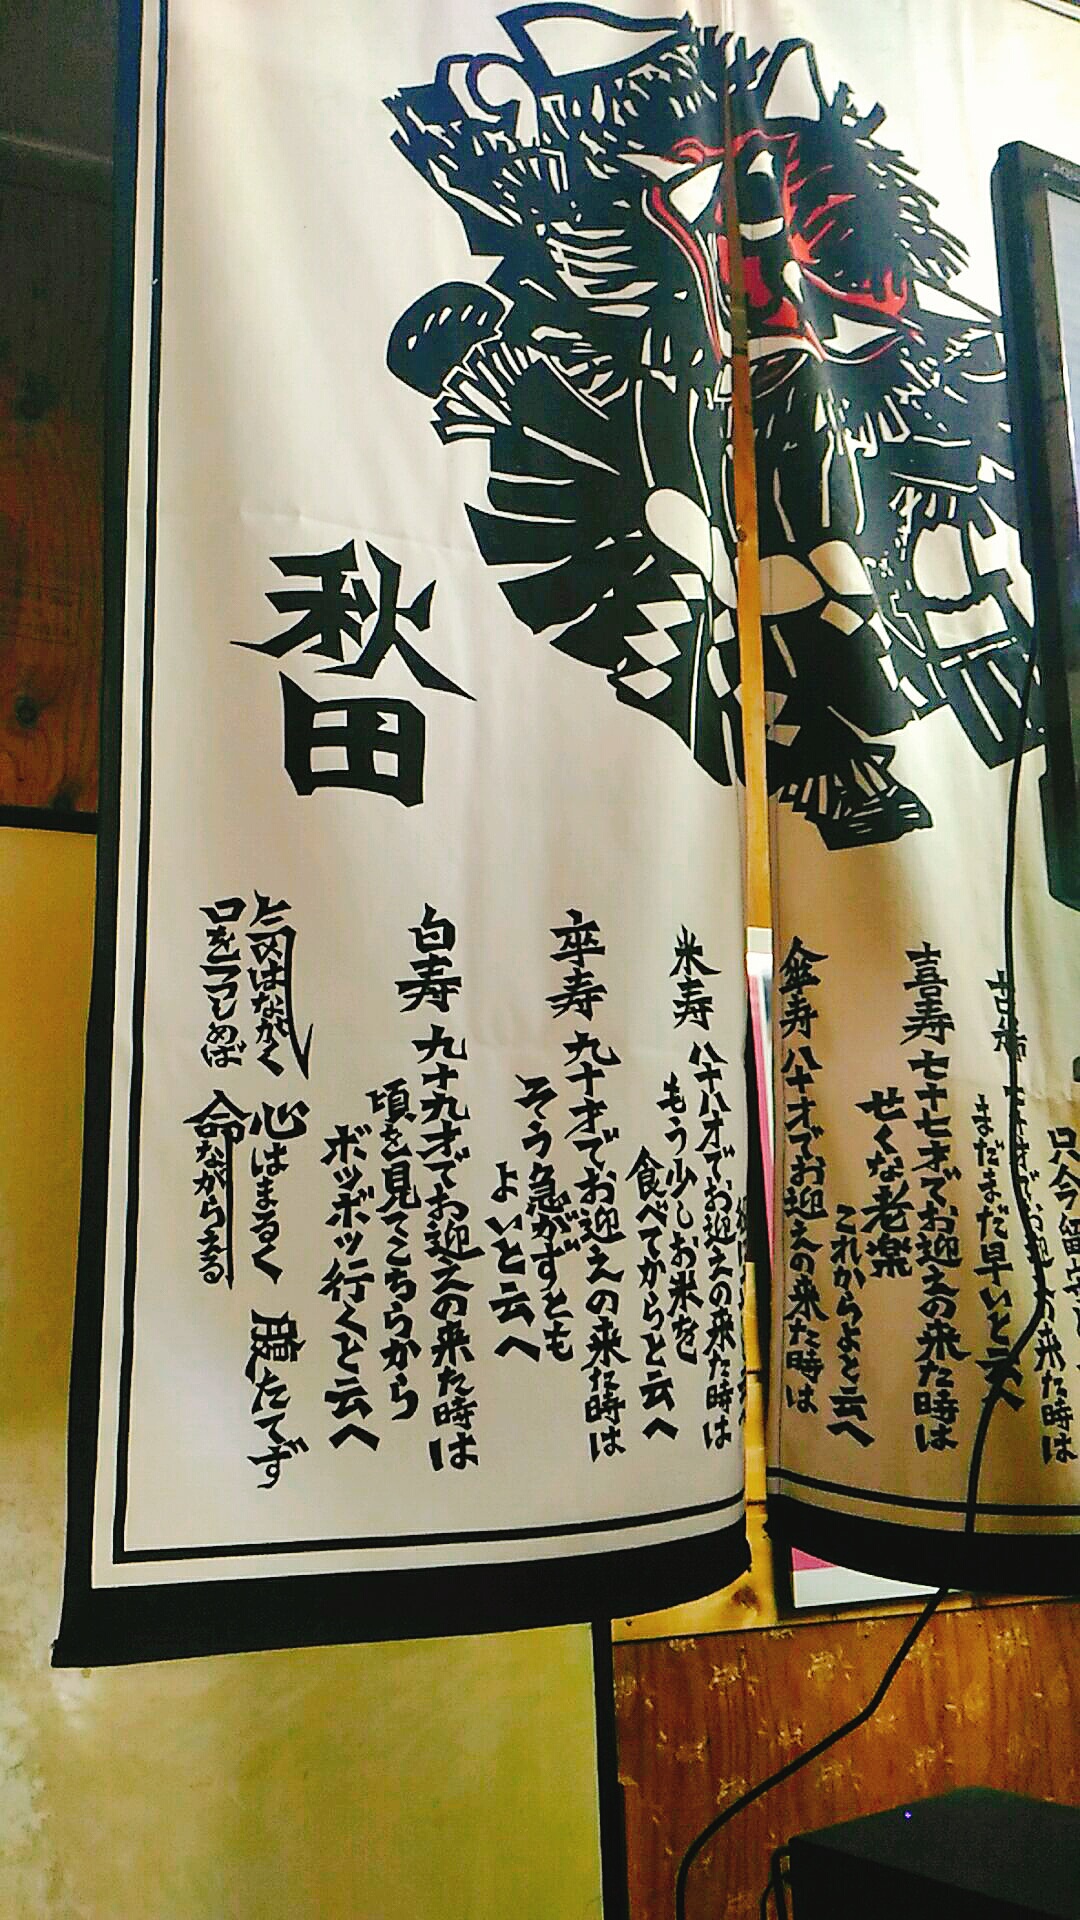 只今留守
古希
まだまだ早いと云へ
喜寿 七十七才でお迎えの来た時は
せくな老楽
これからよと云へ
傘寿 八十才でお迎えの来た時は
米寿 八十八才でお迎えの来た時は
もう少しお米を
食べてからと云へ
卒寿 九十才でお迎えの来た時は
そう急がずとも
よいと云へ
白寿 九十九才でお迎えの来た時は
頃を見てこちらから
ボツボツ行くと云へ
気はながく 心はまるく 腹たてず
口をつつしめば 命ながらえる
秋田